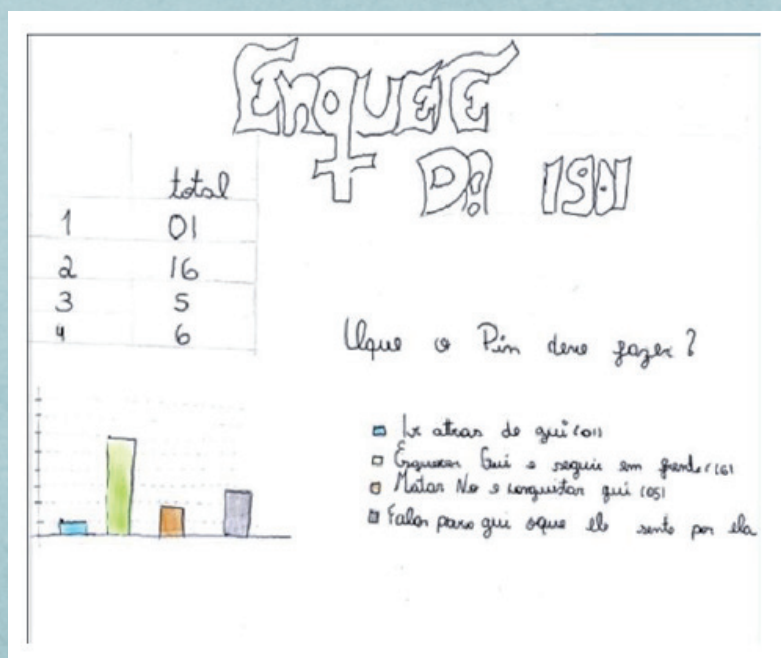 Enquete
Da 1901
total
1 01
2 16
3 5
4 6
Uque o Pin deve fazer?
Ir atras de gui (01)
Esquecer Gui e seguir em frente (16)
Matar No e conquistar gui (05)
Falar para gui oque ele sente por ela